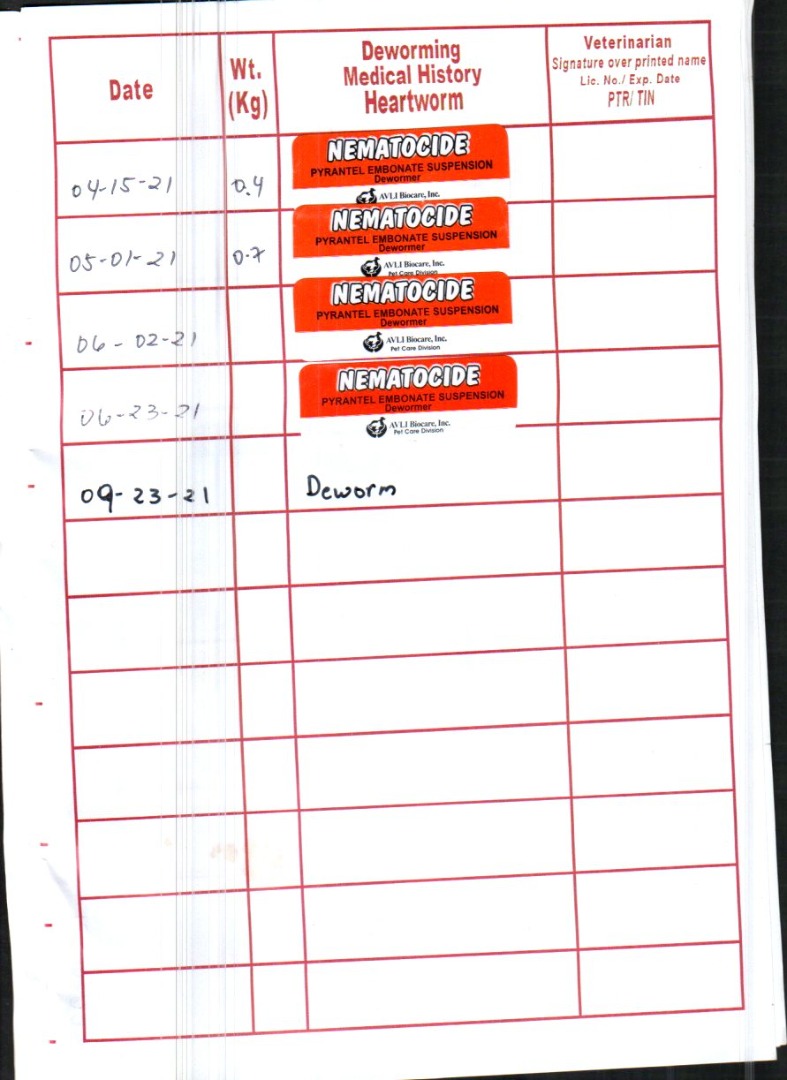 Date
Wt.
(Kg)
Deworming
Medical History
Heartworm
Veterinarian
Signature over printed name
Lic. No./ Exp. Date
PTR/ TIN
04-15-21 0.4
NEMATOCIDE
PYRANTEL EMBONATE SUSPENSION
Dewormer
AVLI Biocare, Inc.
05-01-21 0.7
NEMATOCIDE
PYRANTEL EMBONATE SUSPENSION
Dewormer
AVLI Biocare, Inc.
Pet Care Division
06-02-21
NEMATOCIDE
PYRANTEL EMBONATE SUSPENSION
Dewormer
AVLI Biocare, Inc.
Pet Care Division
06-23-21
NEMATOCIDE
PYRANTEL EMBONATE SUSPENSION
Dewormer
AVLI Biocare, Inc.
Pet Care Division
09-23-21 Deworm